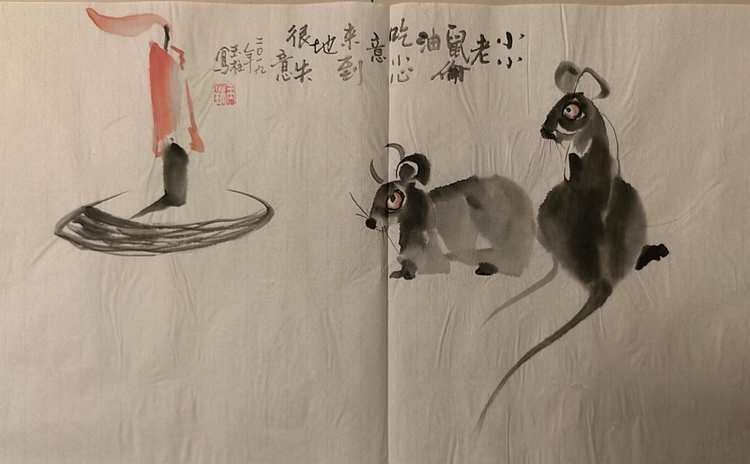 小小
老
鼠偷
油
吃小心
意
来到
地
很失
意
二〇一九
年
玉
寫